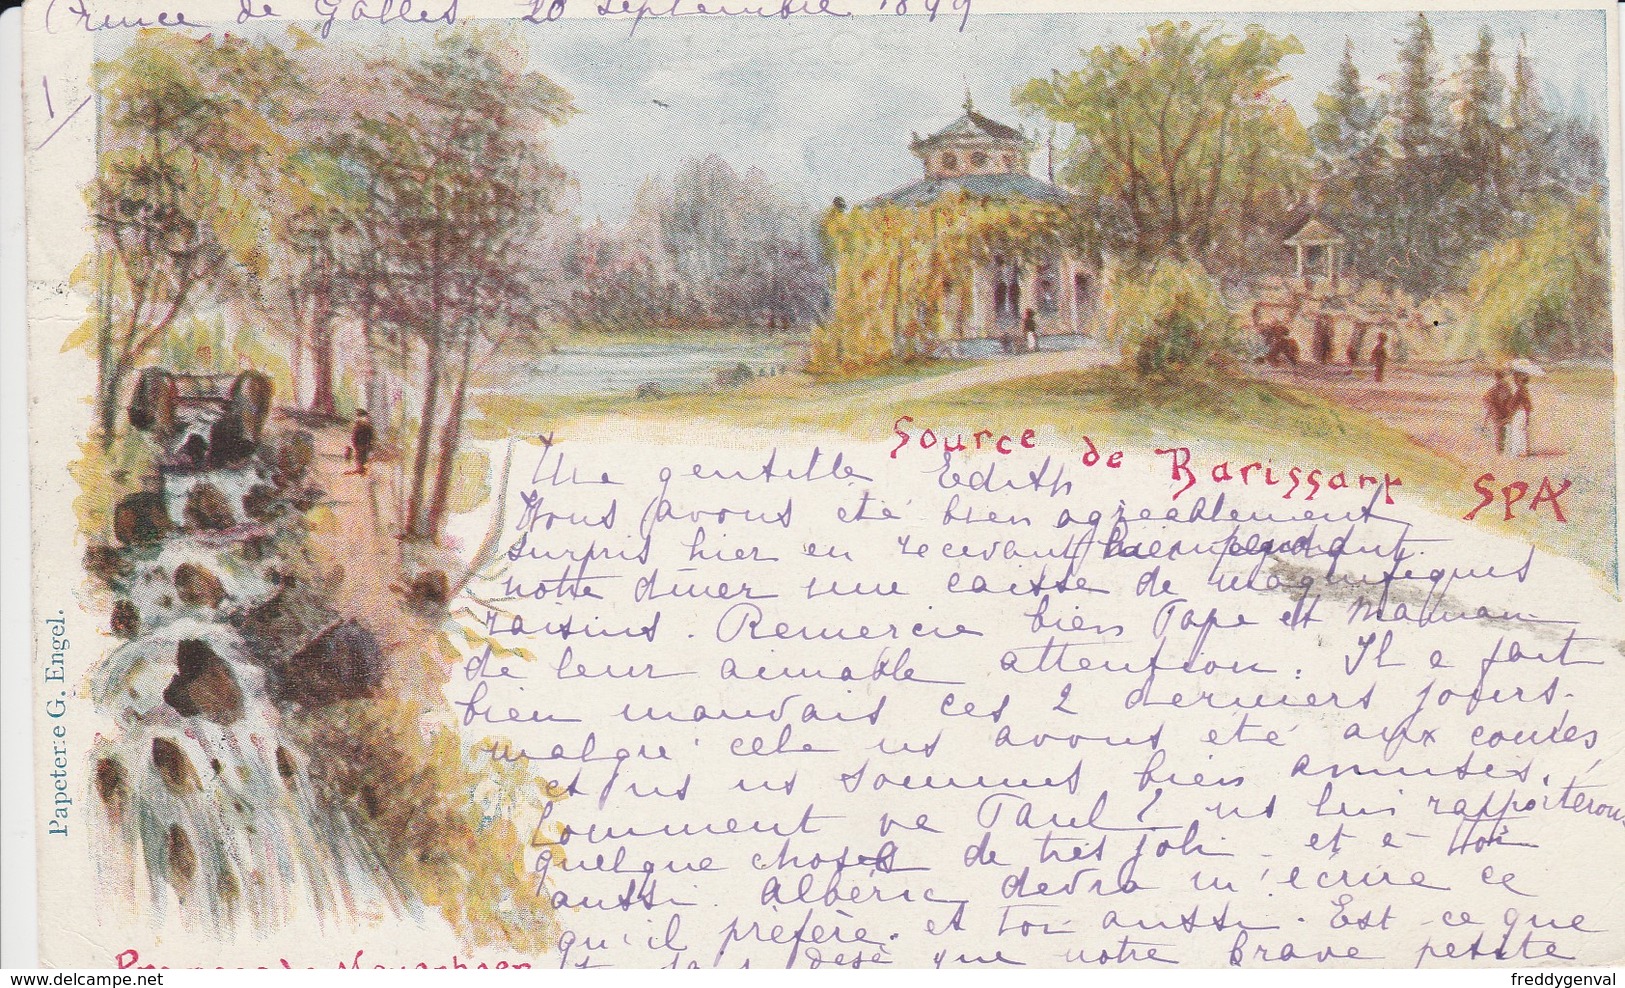 Prince de Galles 20 septembre 1899
1/
Source de Barissart SPA
Ma gentille Edith
Nous avons été bien agréablement
surpris hier en recevant pendant
notre dîner une caisse de magnifiques
raisins. Remercie bien Papa et Maman
de leur aimable attention. Il a fait
bien mauvais ces 2 derniers jours.
malgré cela ns avons été aux courses
et ns ns sommes bien amusés.
Comment va Paul? ns lui rapporterons
quelque chose de très joli et à toi
aussi. Albéric devra m'écrire ce
qu'il préfère. et toi aussi. Est-ce que
que notre brave petite
Papeterie G. Engel.
Promenade Meyerbeer
freddygenval